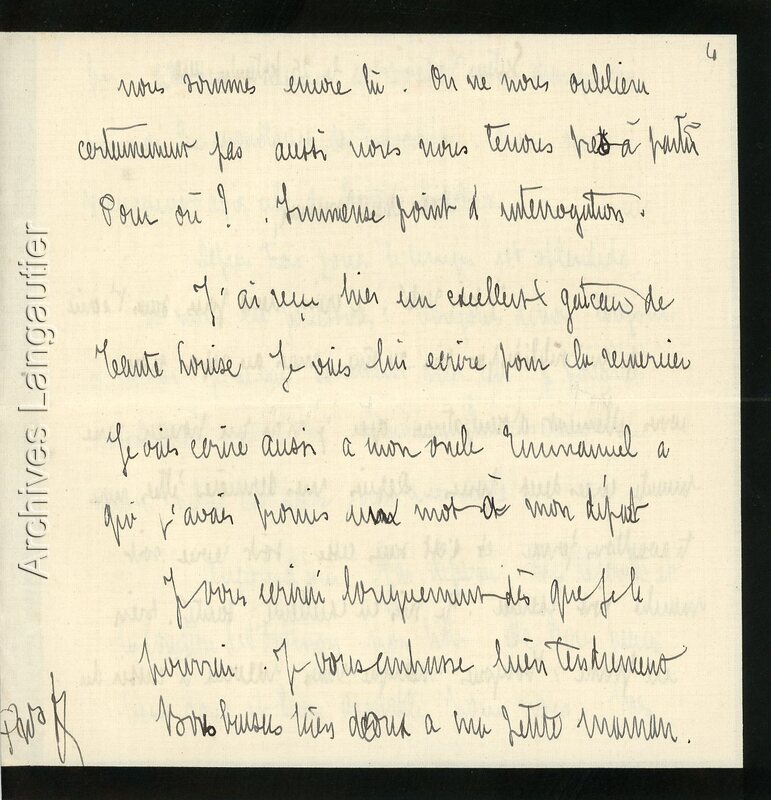 4
nous sommes encore là. On ne nous oubliera
certainement pas aussi nous nous tenons prêt à partir
Pour où ? . Immense point d'interrogation.
J'ai reçu hier un excellent gateau de
tante Louise Je vais lui ecrire pour la remercier
Je vais écrire aussi a mon oncle Emmanuel a
qui j'avais promis un mot à mon départ
Je vous ecrirai longuement dès que je le
pourrai. Je vous embrasse bien tendrement
Bons baisers bien doux a ma petite maman.
Archives Langautier